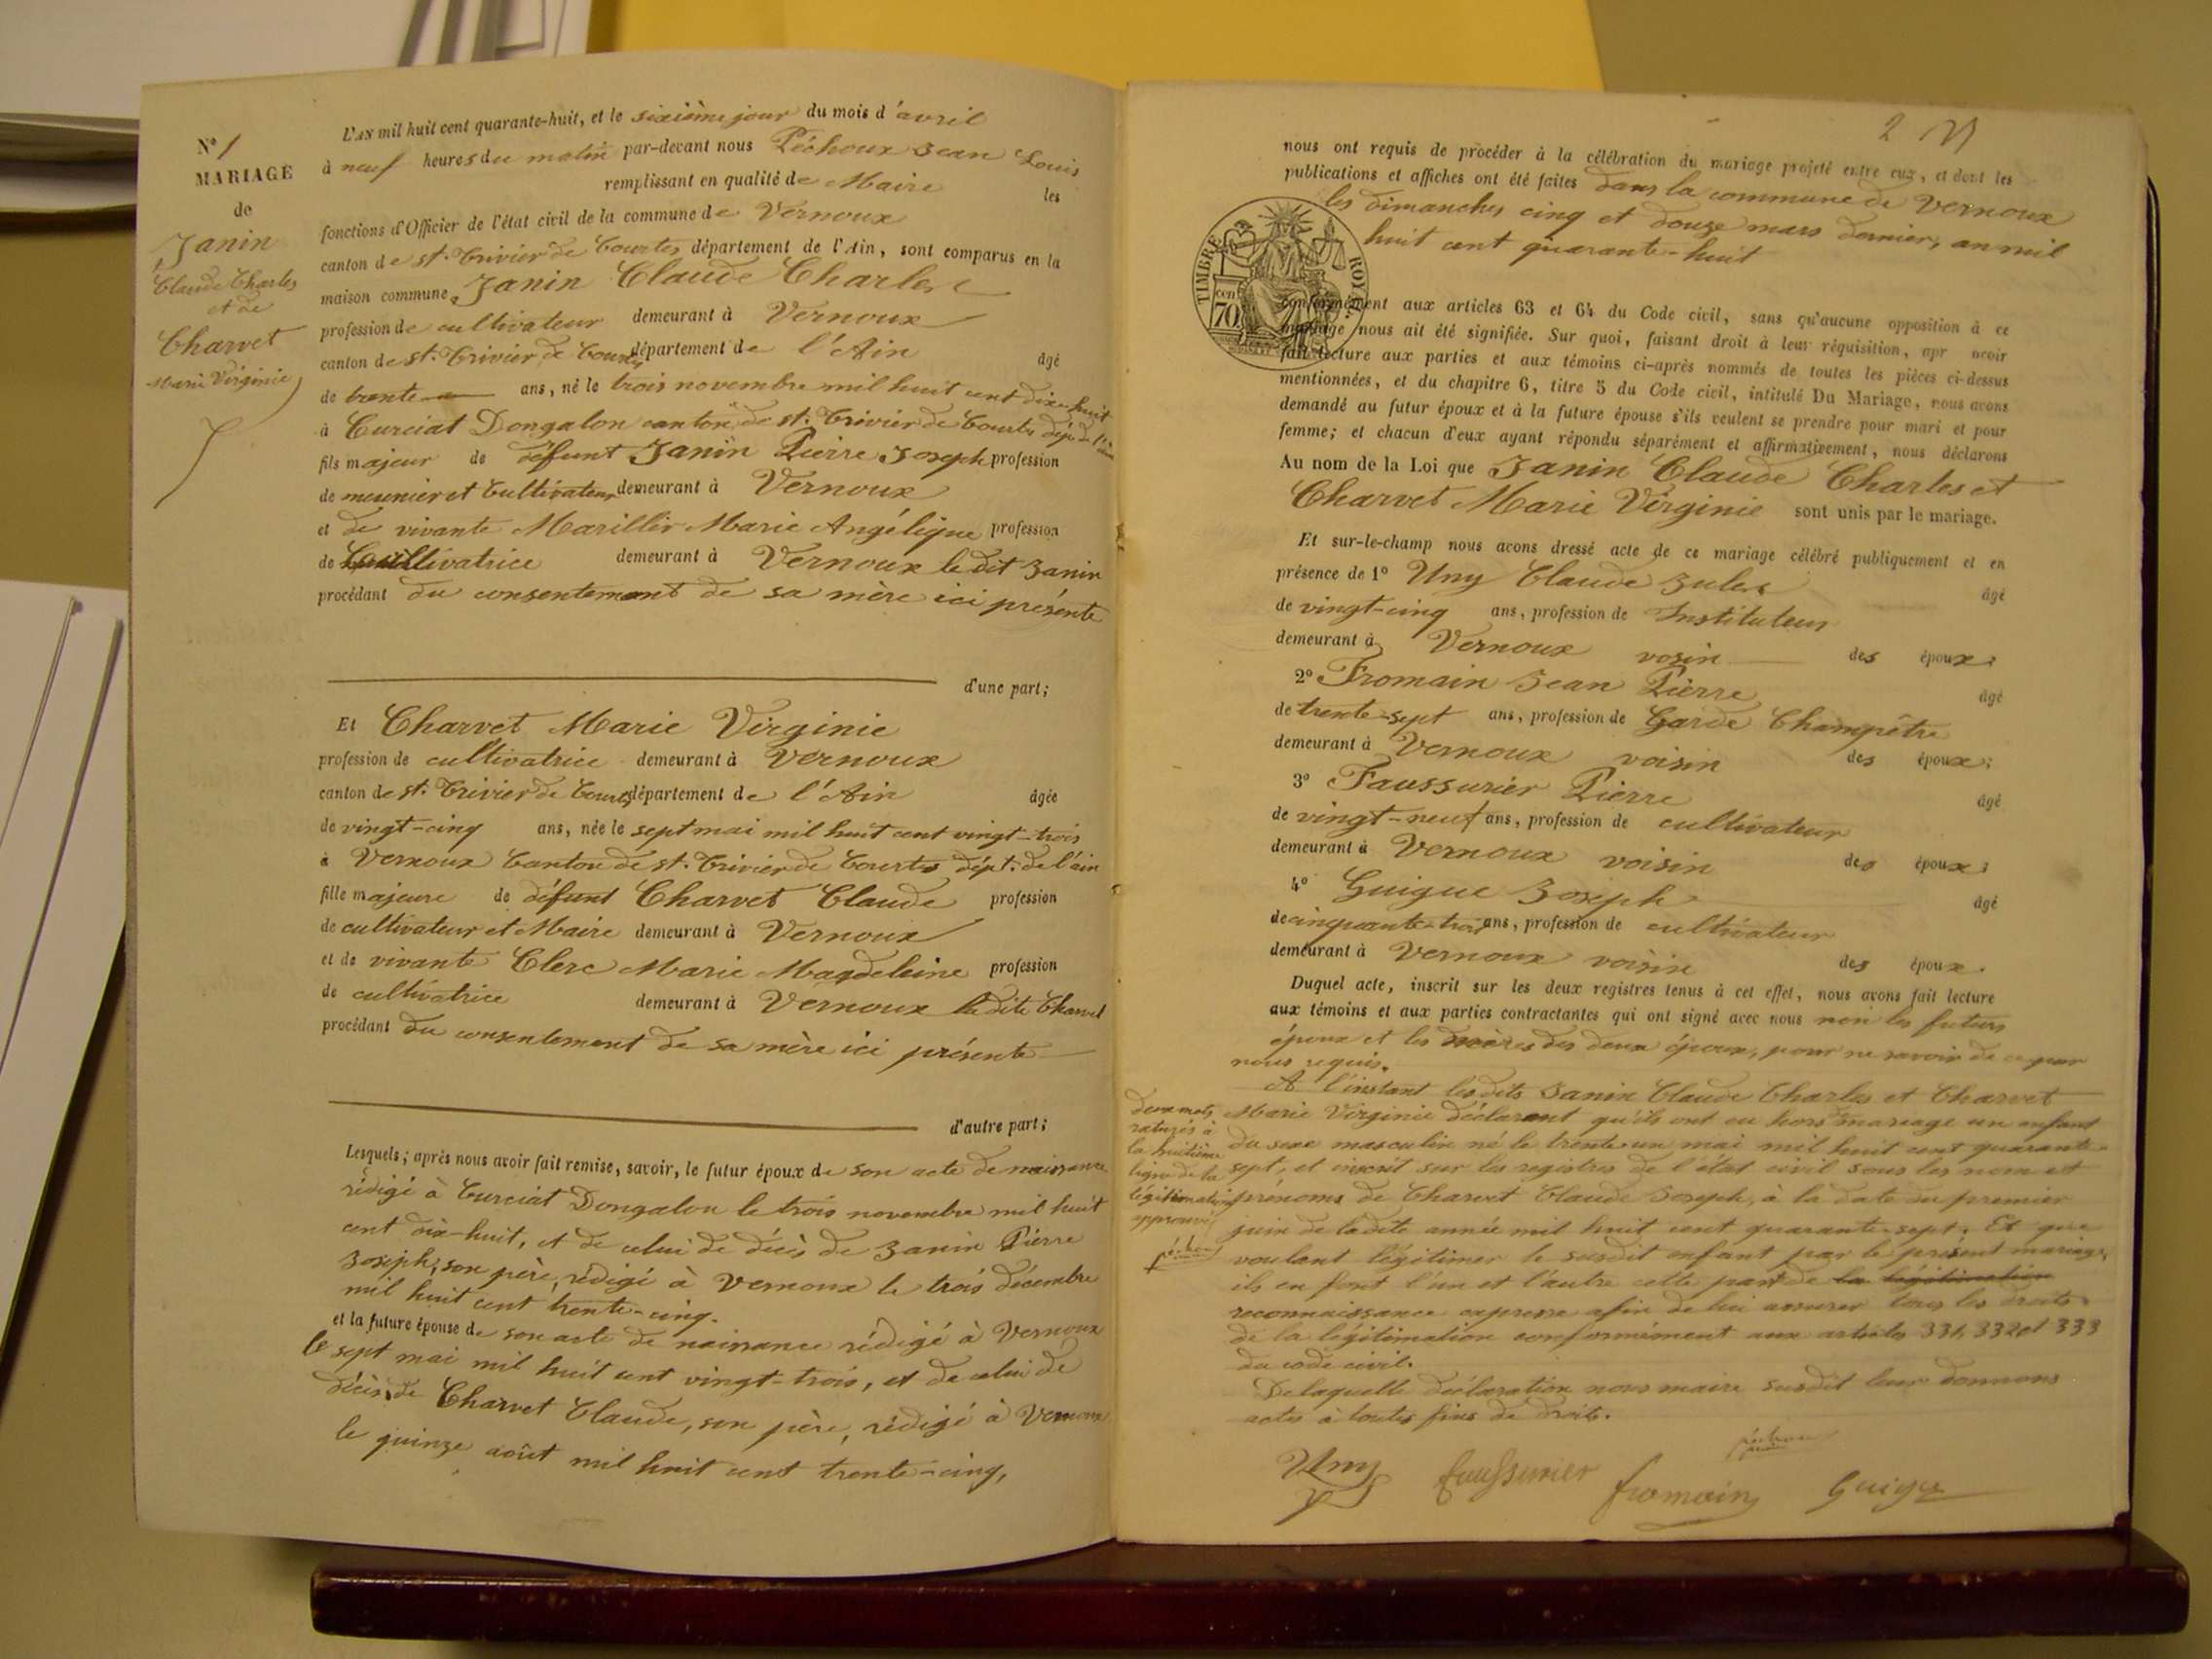 N° 1
MARIAGE
de
Janin
Claude Charles
et de
Charvet
Marie Virginie
L'AN mil huit cent quarante-huit, et le sixième jour du mois d'avril
à neuf heures du matin par-devant nous Péchoux Jean Louis
remplissant en qualité de Maire les
fonctions d'Officier de l'état civil de la commune de Vernoux
canton de st. Trivier de Courtes département de l'Ain, sont comparus en la
maison commune, Janin Claude Charles
profession de cultivateur demeurant à Vernoux
canton de st. Trivier de Courtes département de l'Ain âgé
de trente ans, né le trois novembre mil huit cent dix-huit
à Curciat Dongalon canton de st. Trivier de Courtes dép. de l'ain
fils majeur de défunt Janin Pierre Joseph profession
de meunier et Cultivateur demeurant à Vernoux
et de vivante Marillir Marie Angélique profession
de Cultivatrice demeurant à Vernoux le dit Janin
procédant du consentement de sa mère ici présente
d'une part;
Et Charvet Marie Virginie
profession de cultivatrice demeurant à Vernoux
canton de st. Trivier de Courtes département de l'Ain âgée
de vingt-cinq ans, née le sept mai mil huit cent vingt-trois
à Vernoux Canton de st. Trivier de Courtes dépt. de l'ain
fille majeure de défunt Charvet Claude profession
de cultivateur et Maire demeurant à Vernoux
et de vivante Clerc Marie Magdeleine profession
de cultivatrice demeurant à Vernoux la dite Charvet
procédant du consentement de sa mère ici présente
d'autre part;
Lesquels; après nous avoir fait remise, savoir, le futur époux de son acte de naissance
rédigé à Curciat Dongalon le trois novembre mil huit
cent dix-huit, et de celui de décès de Janin Pierre
Joseph, son père, rédigé à Vernoux le trois décembre
mil huit cent trente-cinq.
et la future épouse de son acte de naissance rédigé à Vernoux
le sept mai mil huit cent vingt-trois, et de celui de
décès de Charvet Claude, son père, rédigé à Vernoux
le quinze août mil huit cent trente-cinq,
2
nous ont requis de procéder à la célébration du mariage projeté entre eux, et dont les
publications et affiches ont été faites dans la commune de Vernoux
les dimanches cinq et douze mars dernier, an mil
huit cent quarante-huit
TIMBRE ROYAL
cen 70
conformément aux articles 63 et 64 du Code civil, sans qu'aucune opposition à ce
mariage nous ait été signifiée. Sur quoi, faisant droit à leur réquisition, apr avoir
fait lecture aux parties et aux témoins ci-après nommés de toutes les pièces ci-dessus
mentionnées, et du chapitre 6, titre 5 du Code civil, intitulé Du Mariage, nous avons
demandé au futur époux et à la future épouse s'ils veulent se prendre pour mari et pour
femme; et chacun d'eux ayant répondu séparément et affirmativement, nous déclarons
Au nom de la Loi que Janin Claude Charles et
Charvet Marie Virginie sont unis par le mariage.
Et sur-le-champ nous avons dressé acte de ce mariage célébré publiquement et en
présence de 1° Uny Claude Jules âgé
de vingt-cinq ans, profession de Instituteur
demeurant à Vernoux vosin des époux;
2° Fromain Jean Pierre âgé
de trente-sept ans, profession de Garde Champêtre
demeurant à Vernoux voisin des époux;
3° Faussurier Pierre âgé
de vingt-neuf ans, profession de cultivateur
demeurant à Vernoux voisin des époux;
4° Guigue Joseph âgé
de cinquante-trois ans, profession de cultivateur
demeurant à Vernoux voisin des époux.
Duquel acte, inscrit sur les deux registres tenus à cet effet, nous avons fait lecture
aux témoins et aux parties contractantes qui ont signé avec nous non les futurs
époux et les mères des deux époux, pour ne savoir de ce par
nous requis.
A l'instant les dits Janin Claude Charles et Charvet
Marie Virginie déclarent qu'ils ont eu hors mariage un enfant
du sexe masculin né le trente-un mai mil huit cent quarante-
sept, et inscrit sur les registres de l'état civil sous les nom et
prénoms de Charvet Claude Joseph, à la date du premier
juin de ladite année mil huit cent quarante-sept. Et que
voulant légitimer le susdit enfant par le présent mariage,
ils en font l'un et l'autre cette part de la légitimation
reconnaissance expresse afin de lui assurer tous les droits
de la légitimation conformément aux articles 331, 332 et 333
du code civil.
De laquelle déclaration nous maire susdit leur donnons
actes à toutes fins de droits.
deux mots
raturés à
la huitième
ligne de la
légitimation
approuvés
péchoux
péchoux
maire
Uny Faussurier fromain Guigue